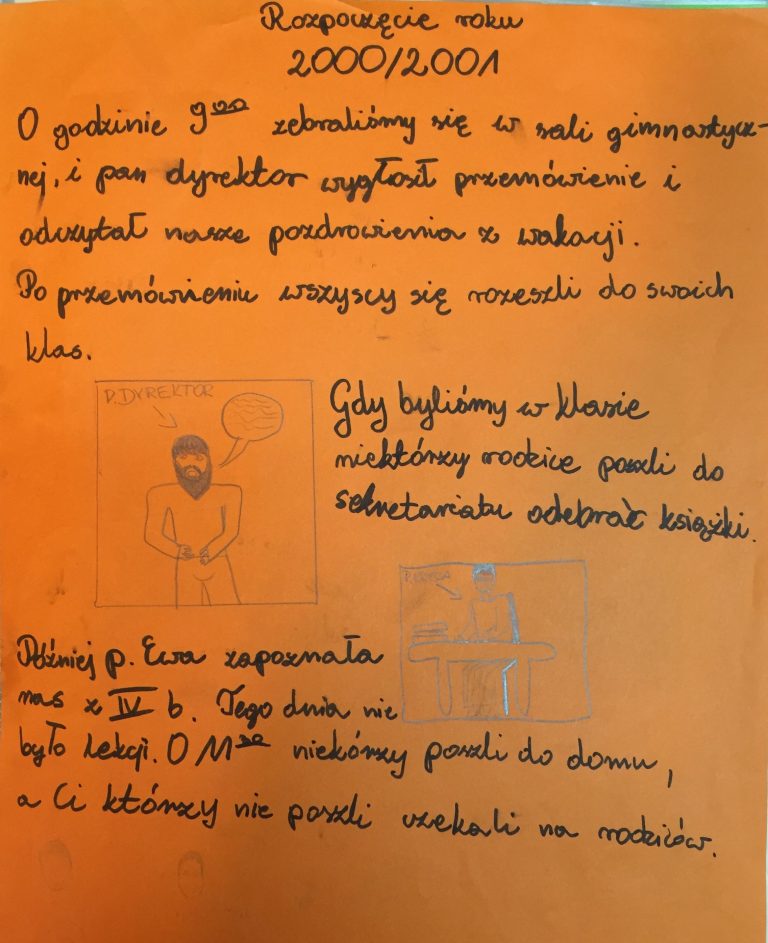 Rozpoczęcie roku
2000/2001
O godzinie 9⁰⁰ zebraliśmy się w sali gimnastycz-
nej, i pan dyrektor wygłosił przemówienie i
odczytał nasze pozdrowienia z wakacji.
Po przemównieniu wszyscy się rozeszli do swoich
klas.
P. DYREKTOR
Gdy byliśmy w klasie
niektórzy rodzice poszli do
sekretariatu odebrać książki.
Później p. Ewa zapoznała
nas z IV b. Tego dnia nie
było lekcji. O 11³⁰ niekórzy poszli do domu,
a Ci którzy nie poszli czekali na rodziców.